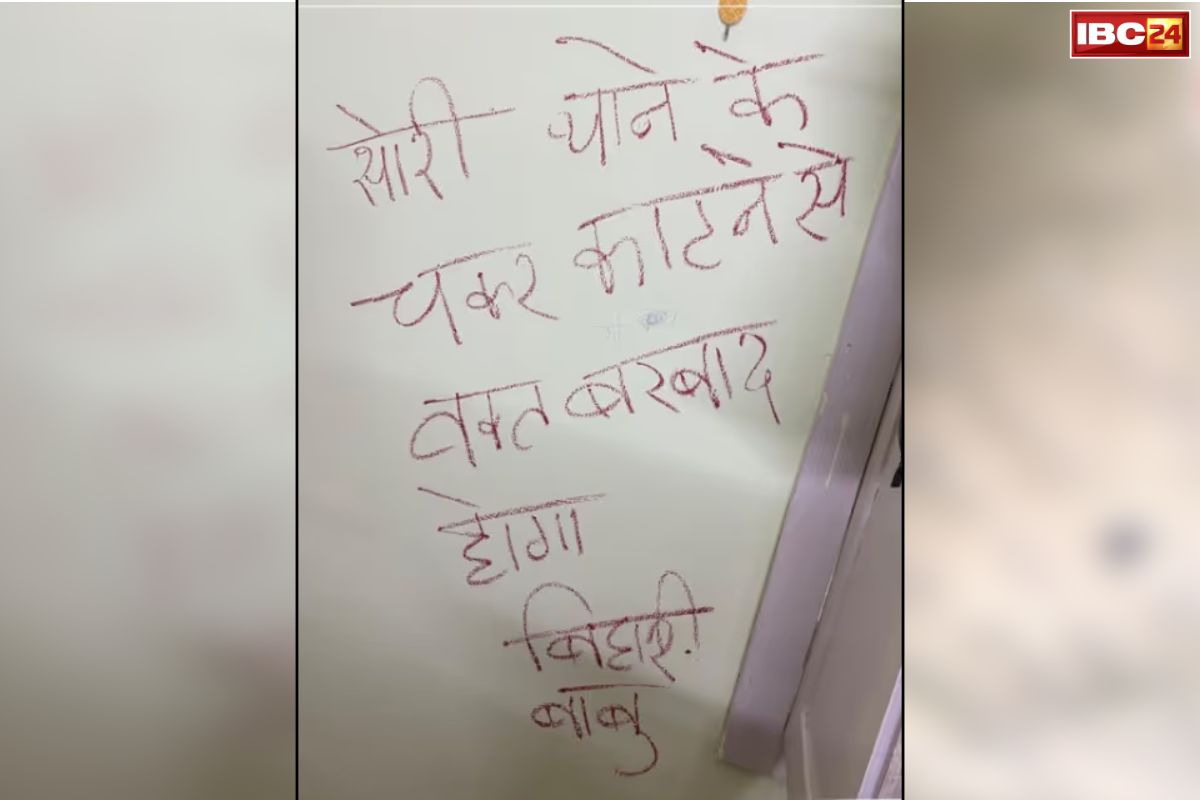 IBC24
सोरी थाने के
चकर काटने से
वक्त बरबाद
होगा
बिहारी
बाबु